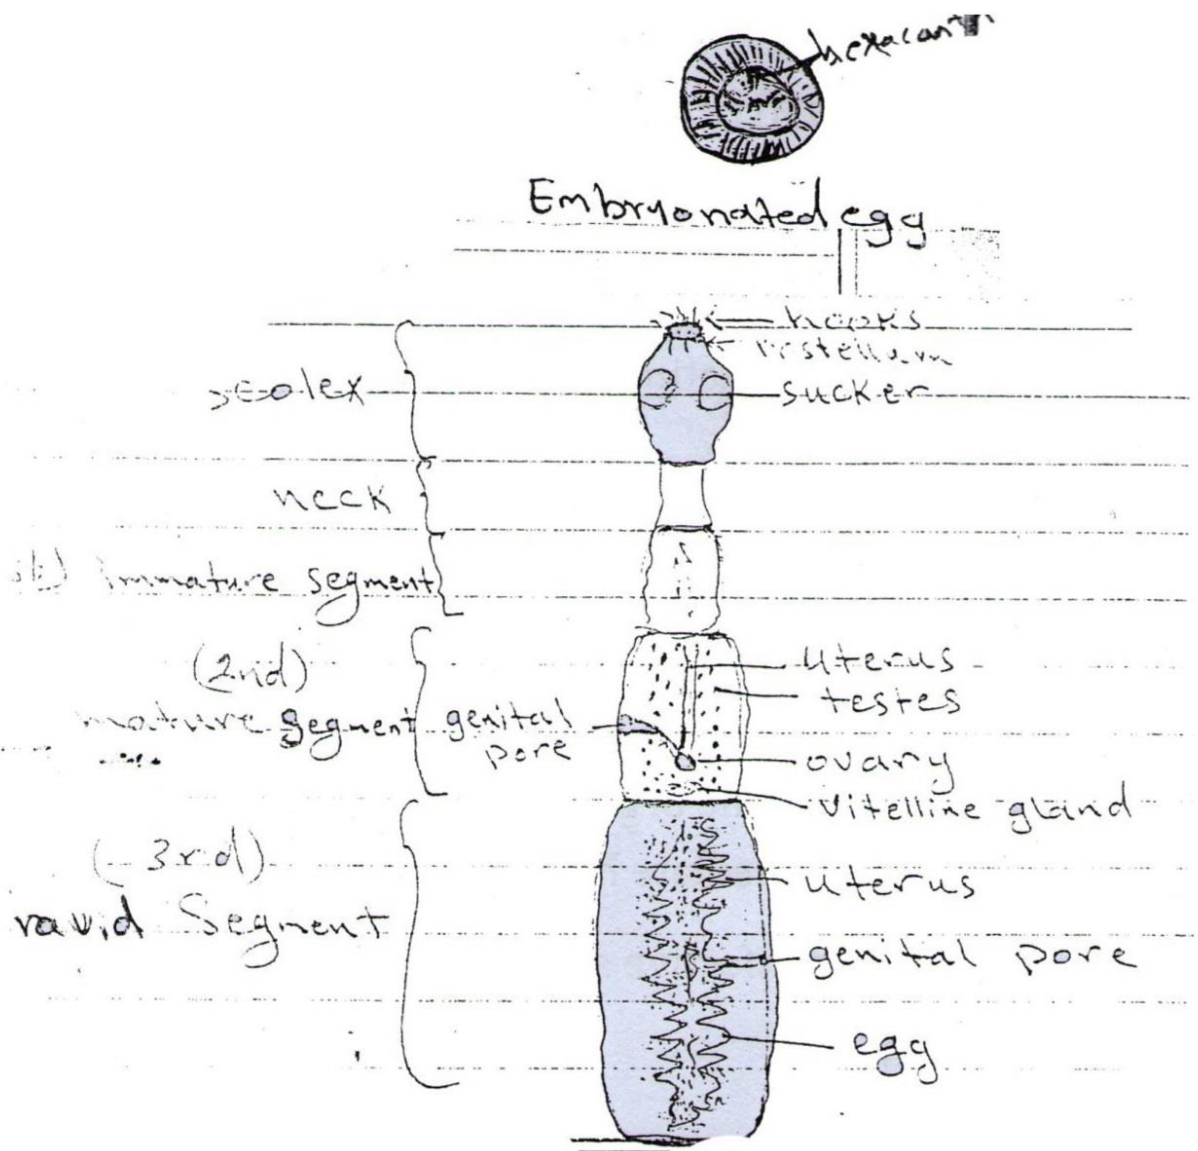 hexacanth
Embryonated egg
hooks
rostellum
scolex
sucker
neck
immature segment
(2nd)
mature segment
genital
pore
uterus
testes
ovary
vitelline gland
(3rd)
ravid Segment
uterus
genital pore
egg